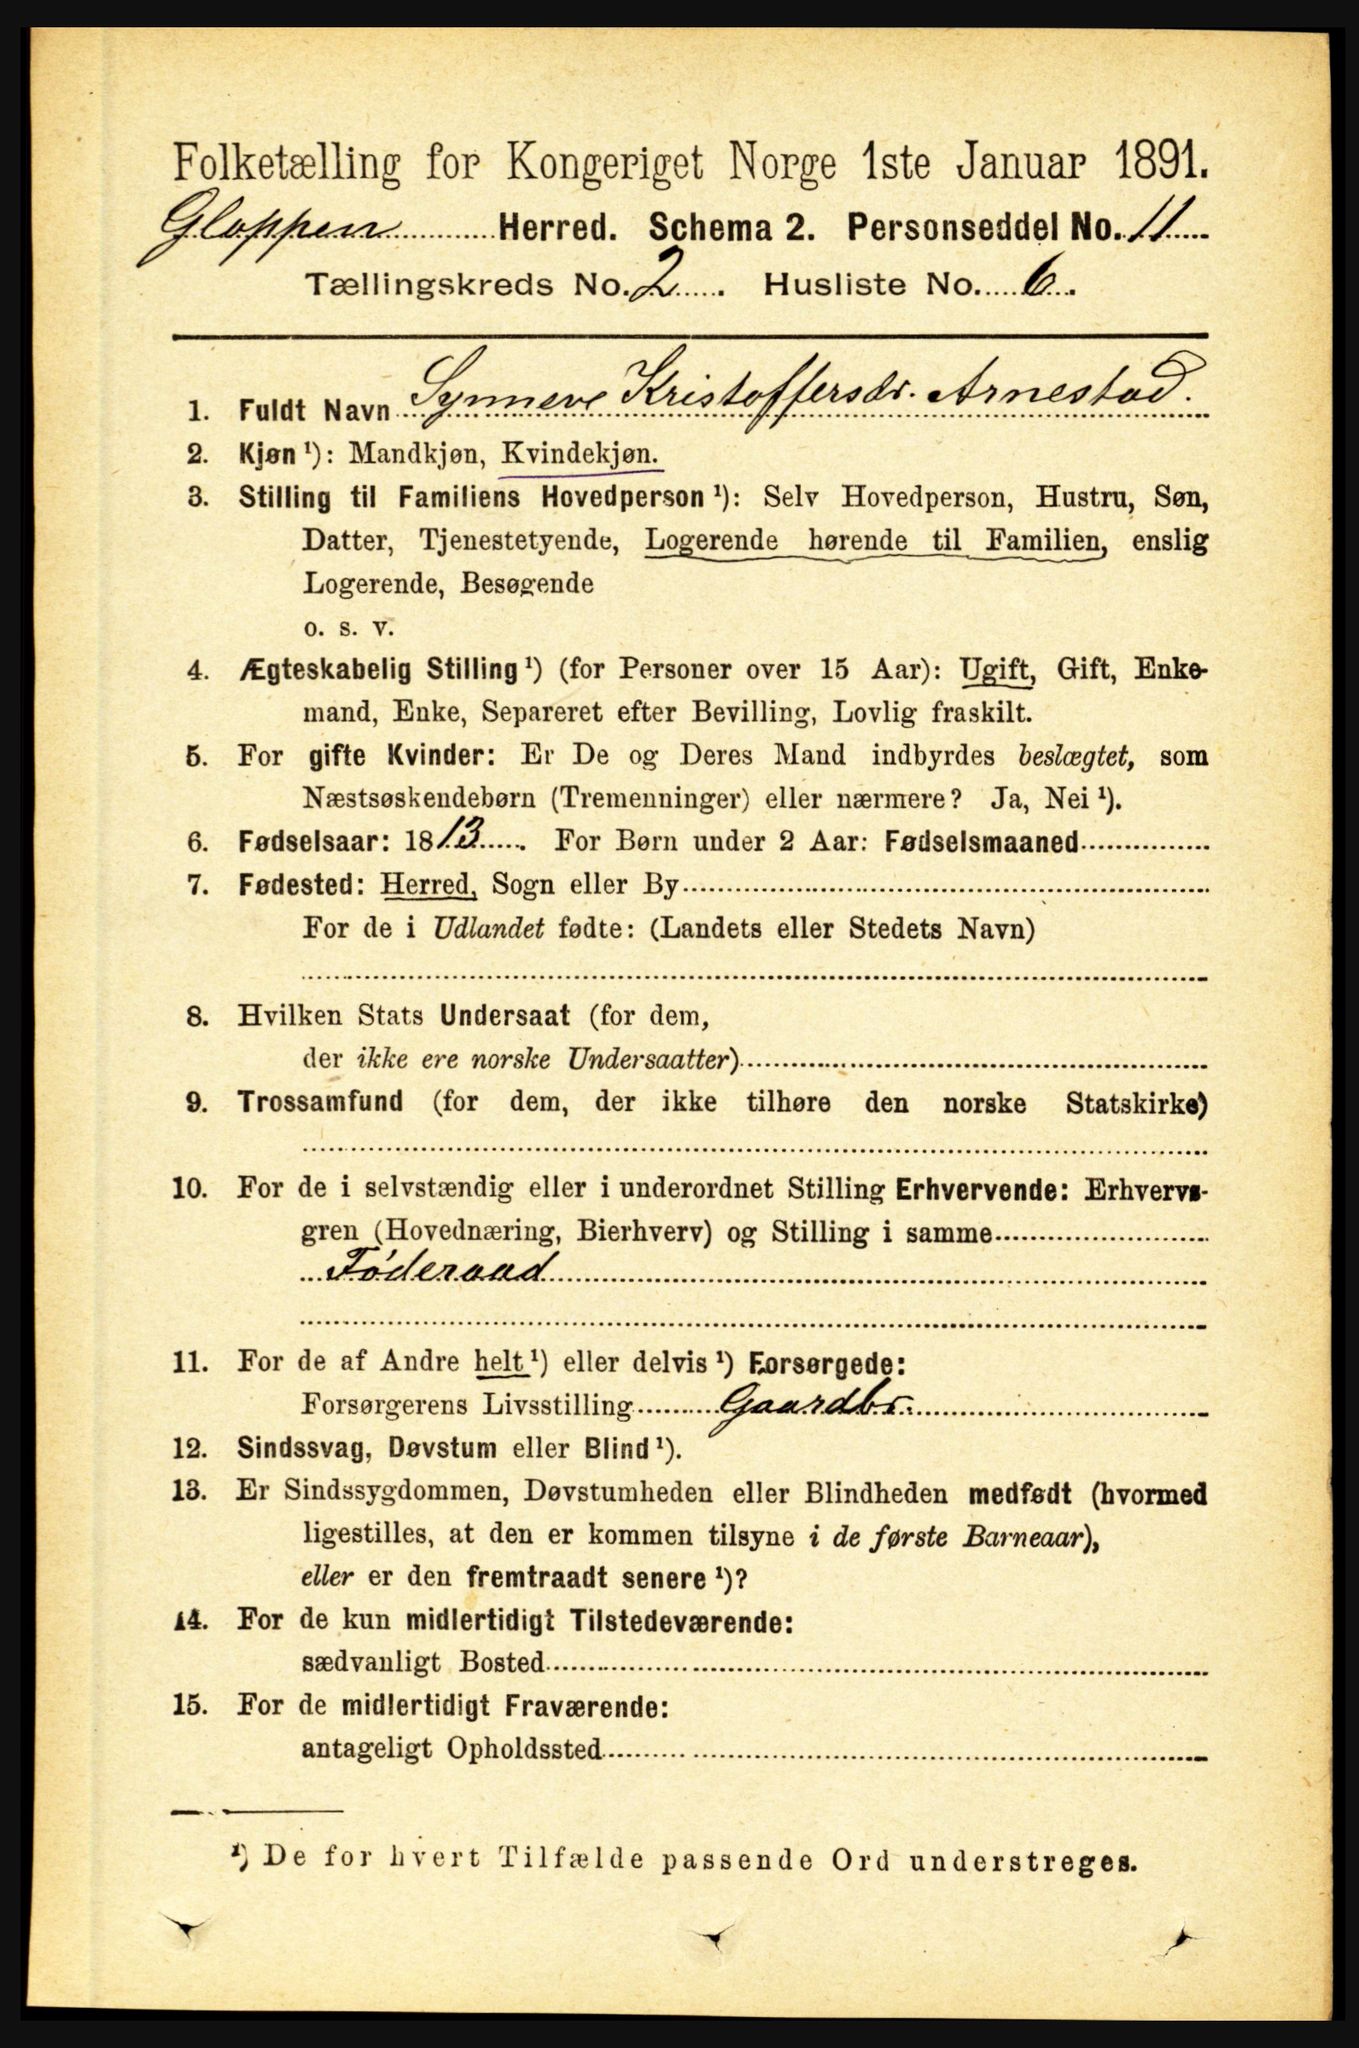 Folketælling for Kongeriget Norge 1ste Januar 1891.
Gloppen Herred. Schema 2. Personseddel No. 11
Tællingskreds No. 2. Husliste No. 6.
1. Fuldt Navn Synneve Kristoffersdr. Arnestad.
2. Kjøn ¹): Mandkjøn, Kvindekjøn.
3. Stilling til Familiens Hovedperson ¹): Selv Hovedperson, Hustru, Søn,
Datter, Tjenestetyende, Logerende hørende til Familien, enslig
Logerende, Besøgende
o. s. v.
4. Ægteskabelig Stilling ¹) (for Personer over 15 Aar): Ugift, Gift, Enke-
mand, Enke, Separeret efter Bevilling, Lovlig fraskilt.
5. For gifte Kvinder: Er De og Deres Mand indbyrdes beslægtet, som
Næstsøskendebørn (Tremenninger) eller nærmere? Ja, Nei ¹).
6. Fødselsaar: 1813. For Børn under 2 Aar: Fødselsmaaned
7. Fødested: Herred, Sogn eller By
For de i Udlandet fødte: (Landets eller Stedets Navn)
8. Hvilken Stats Undersaat (for dem,
der ikke ere norske Undersaatter)
9. Trossamfund (for dem, der ikke tilhøre den norske Statskirke)
10. For de i selvstændig eller i underordnet Stilling Erhvervende: Erhvervs-
gren (Hovednæring, Bierhverv) og Stilling i samme
Føderaad
11. For de af Andre helt ¹) eller delvis ¹) Forsørgede:
Forsørgerens Livsstilling Gaardbr.
12. Sindssvag, Døvstum eller Blind ¹).
13. Er Sindssygdommen, Døvstumheden eller Blindheden medfødt (hvormed
ligestilles, at den er kommen tilsyne i de første Barneaar),
eller er den fremtraadt senere ¹)?
14. For de kun midlertidigt Tilstedeværende:
sædvanligt Bosted
15. For de midlertidigt Fraværende:
antageligt Opholdssted
¹) De for hvert Tilfælde passende Ord understreges.